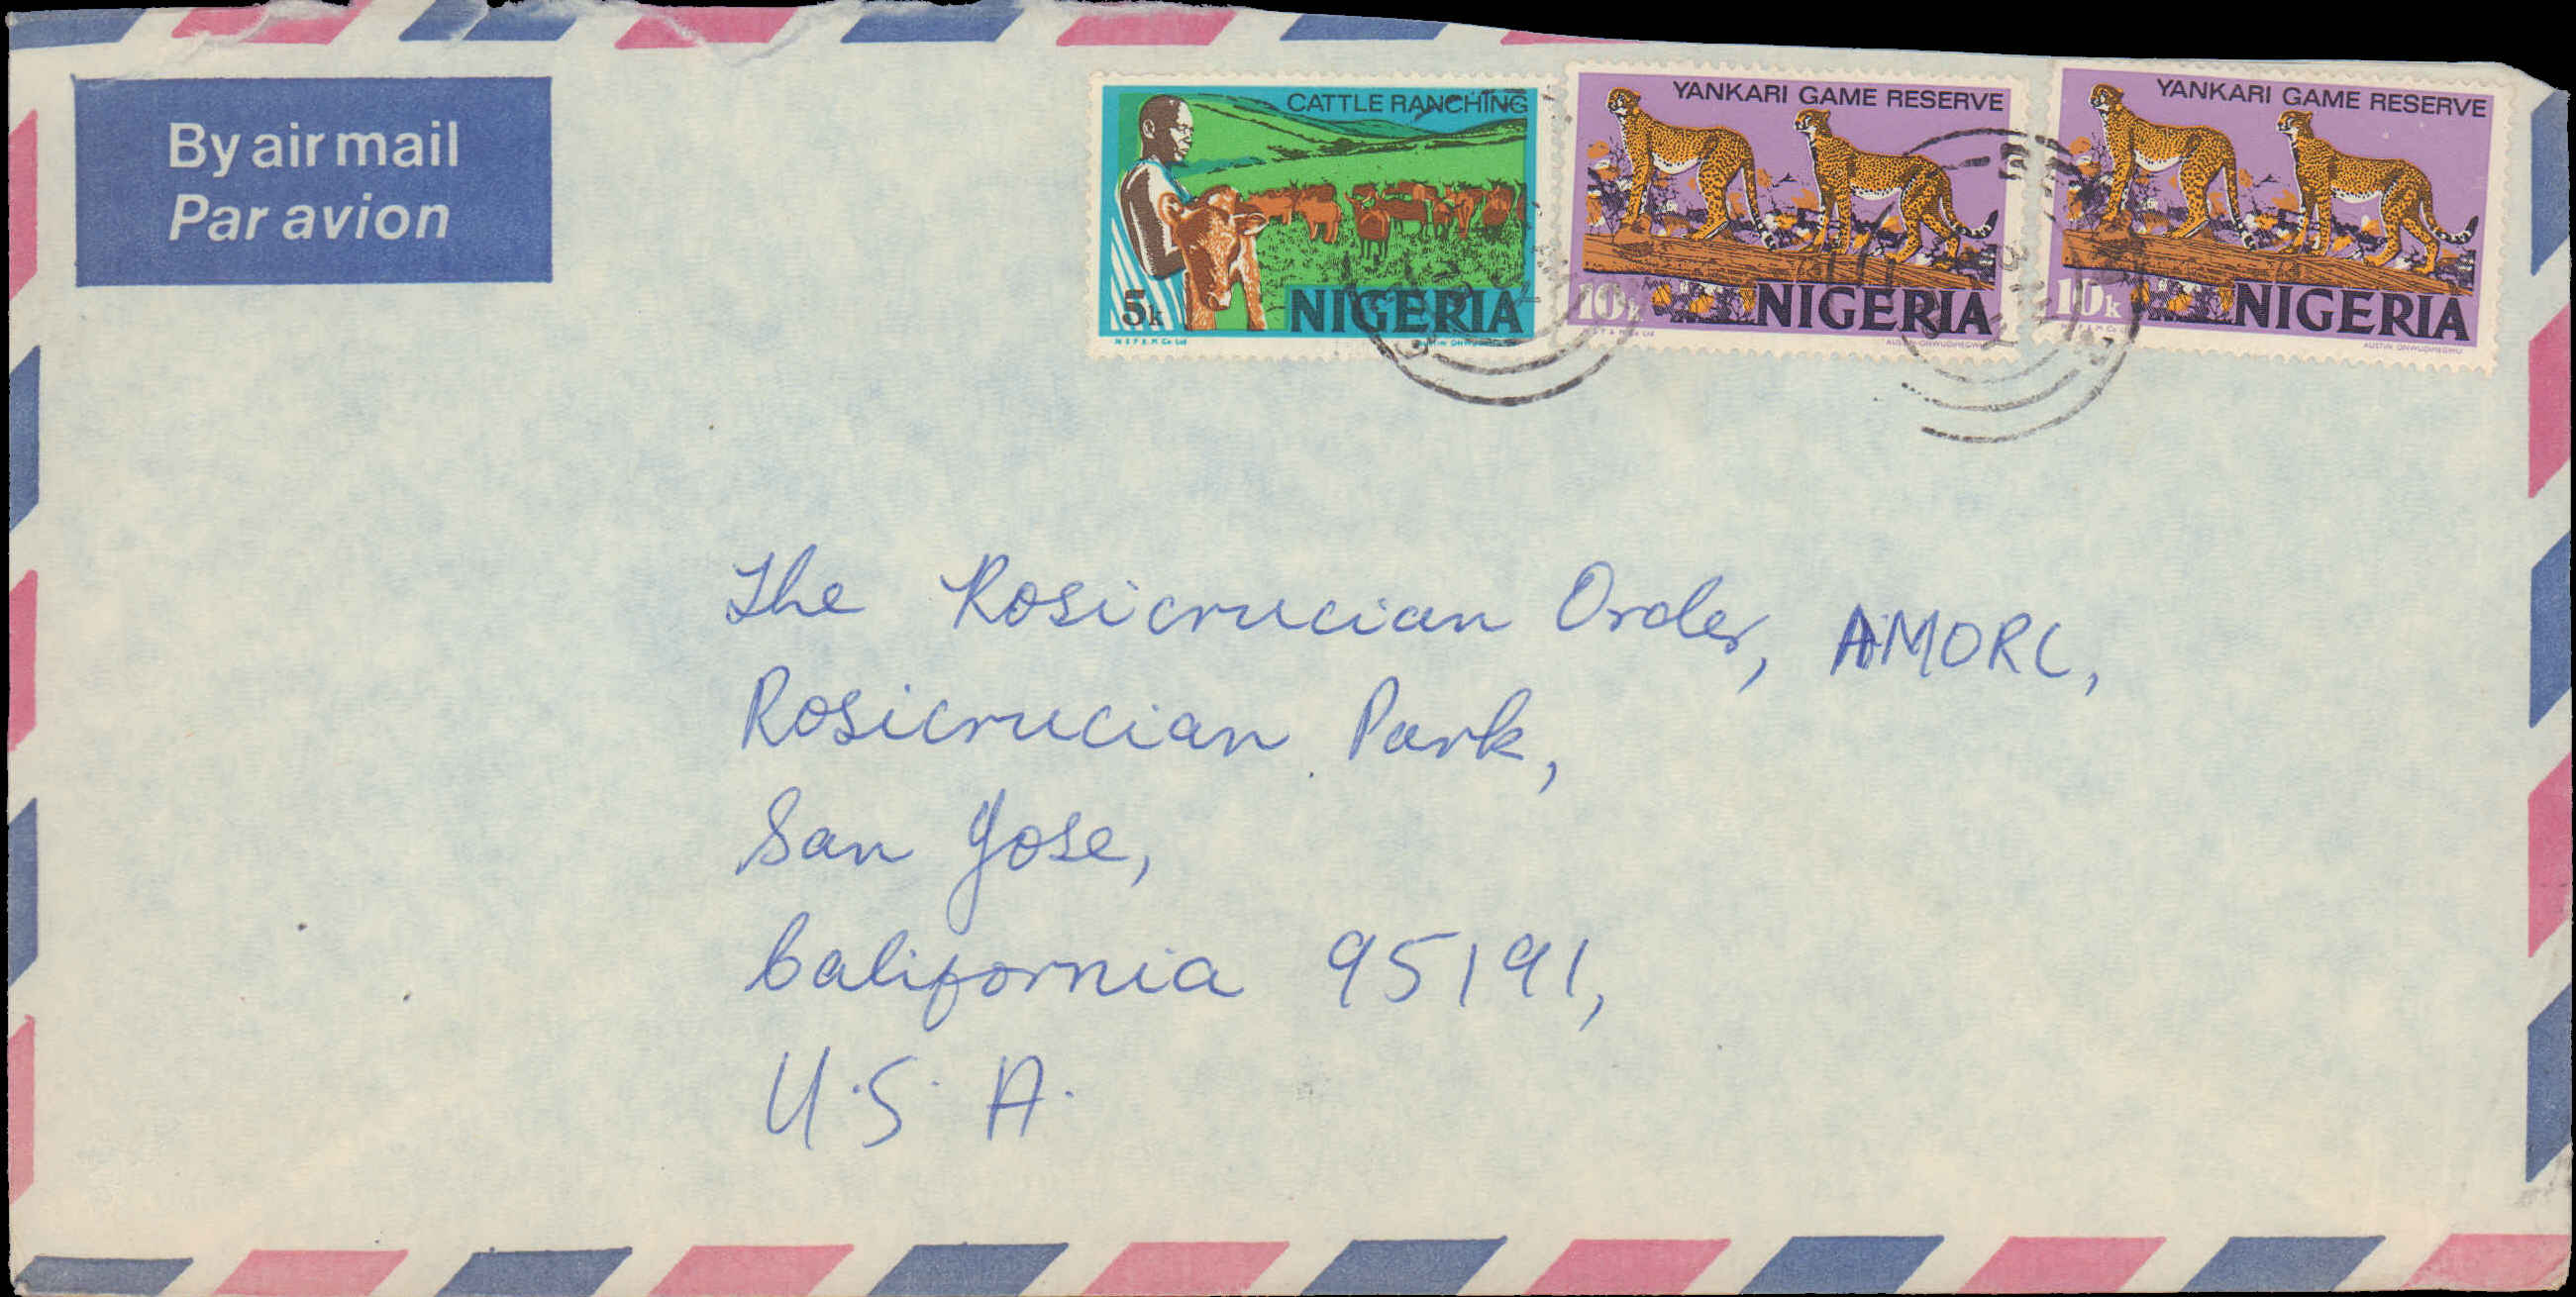 By air mail
Par avion
CATTLE RANCHING
5k
NIGERIA
N S P & M Co Ltd
YANKARI GAME RESERVE
10k
NIGERIA
YANKARI GAME RESERVE
10k
NIGERIA
AUSTIN ONWUDIMEGWU
The Rosicrucian Order, AMORC,
Rosicrucian Park,
San Jose,
California 95191,
U.S.A.